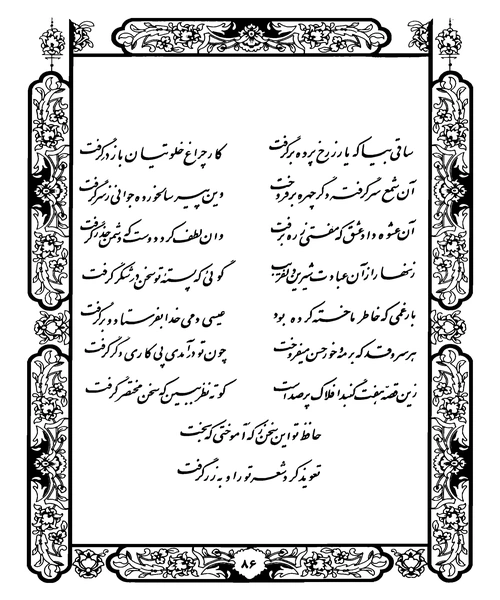 ساقی بیا که یار ز رخ پرده برگرفت کار چراغ خلوتیان باز درگرفت
آن شمع سر گرفته دگر چهره برفروخت وین پیر سالخورده جوانی ز سر گرفت
آن عشوه داد عشق که مفتی ز ره برفت وان لطف کرد دوست که دشمن حذر گرفت
زنهار از آن عبارت شیرین دلفریب گوئی که پسته تو سخن در شکر گرفت
بار غمی که خاطر ما خسته کرده بود عیسی دمی خدا بفرستاد و برگرفت
هر سرو قد که بر مه و خور حسن میفروخت چون تو درآمدی پی کاری دگر گرفت
زین قصه هفت گنبد افلاک پر صداست کوته نظر ببین که سخن مختصر گرفت
حافظ تو این سخن ز که آموختی که بخت
تعویذ کرد شعر تو را و به زر گرفت
۸۶